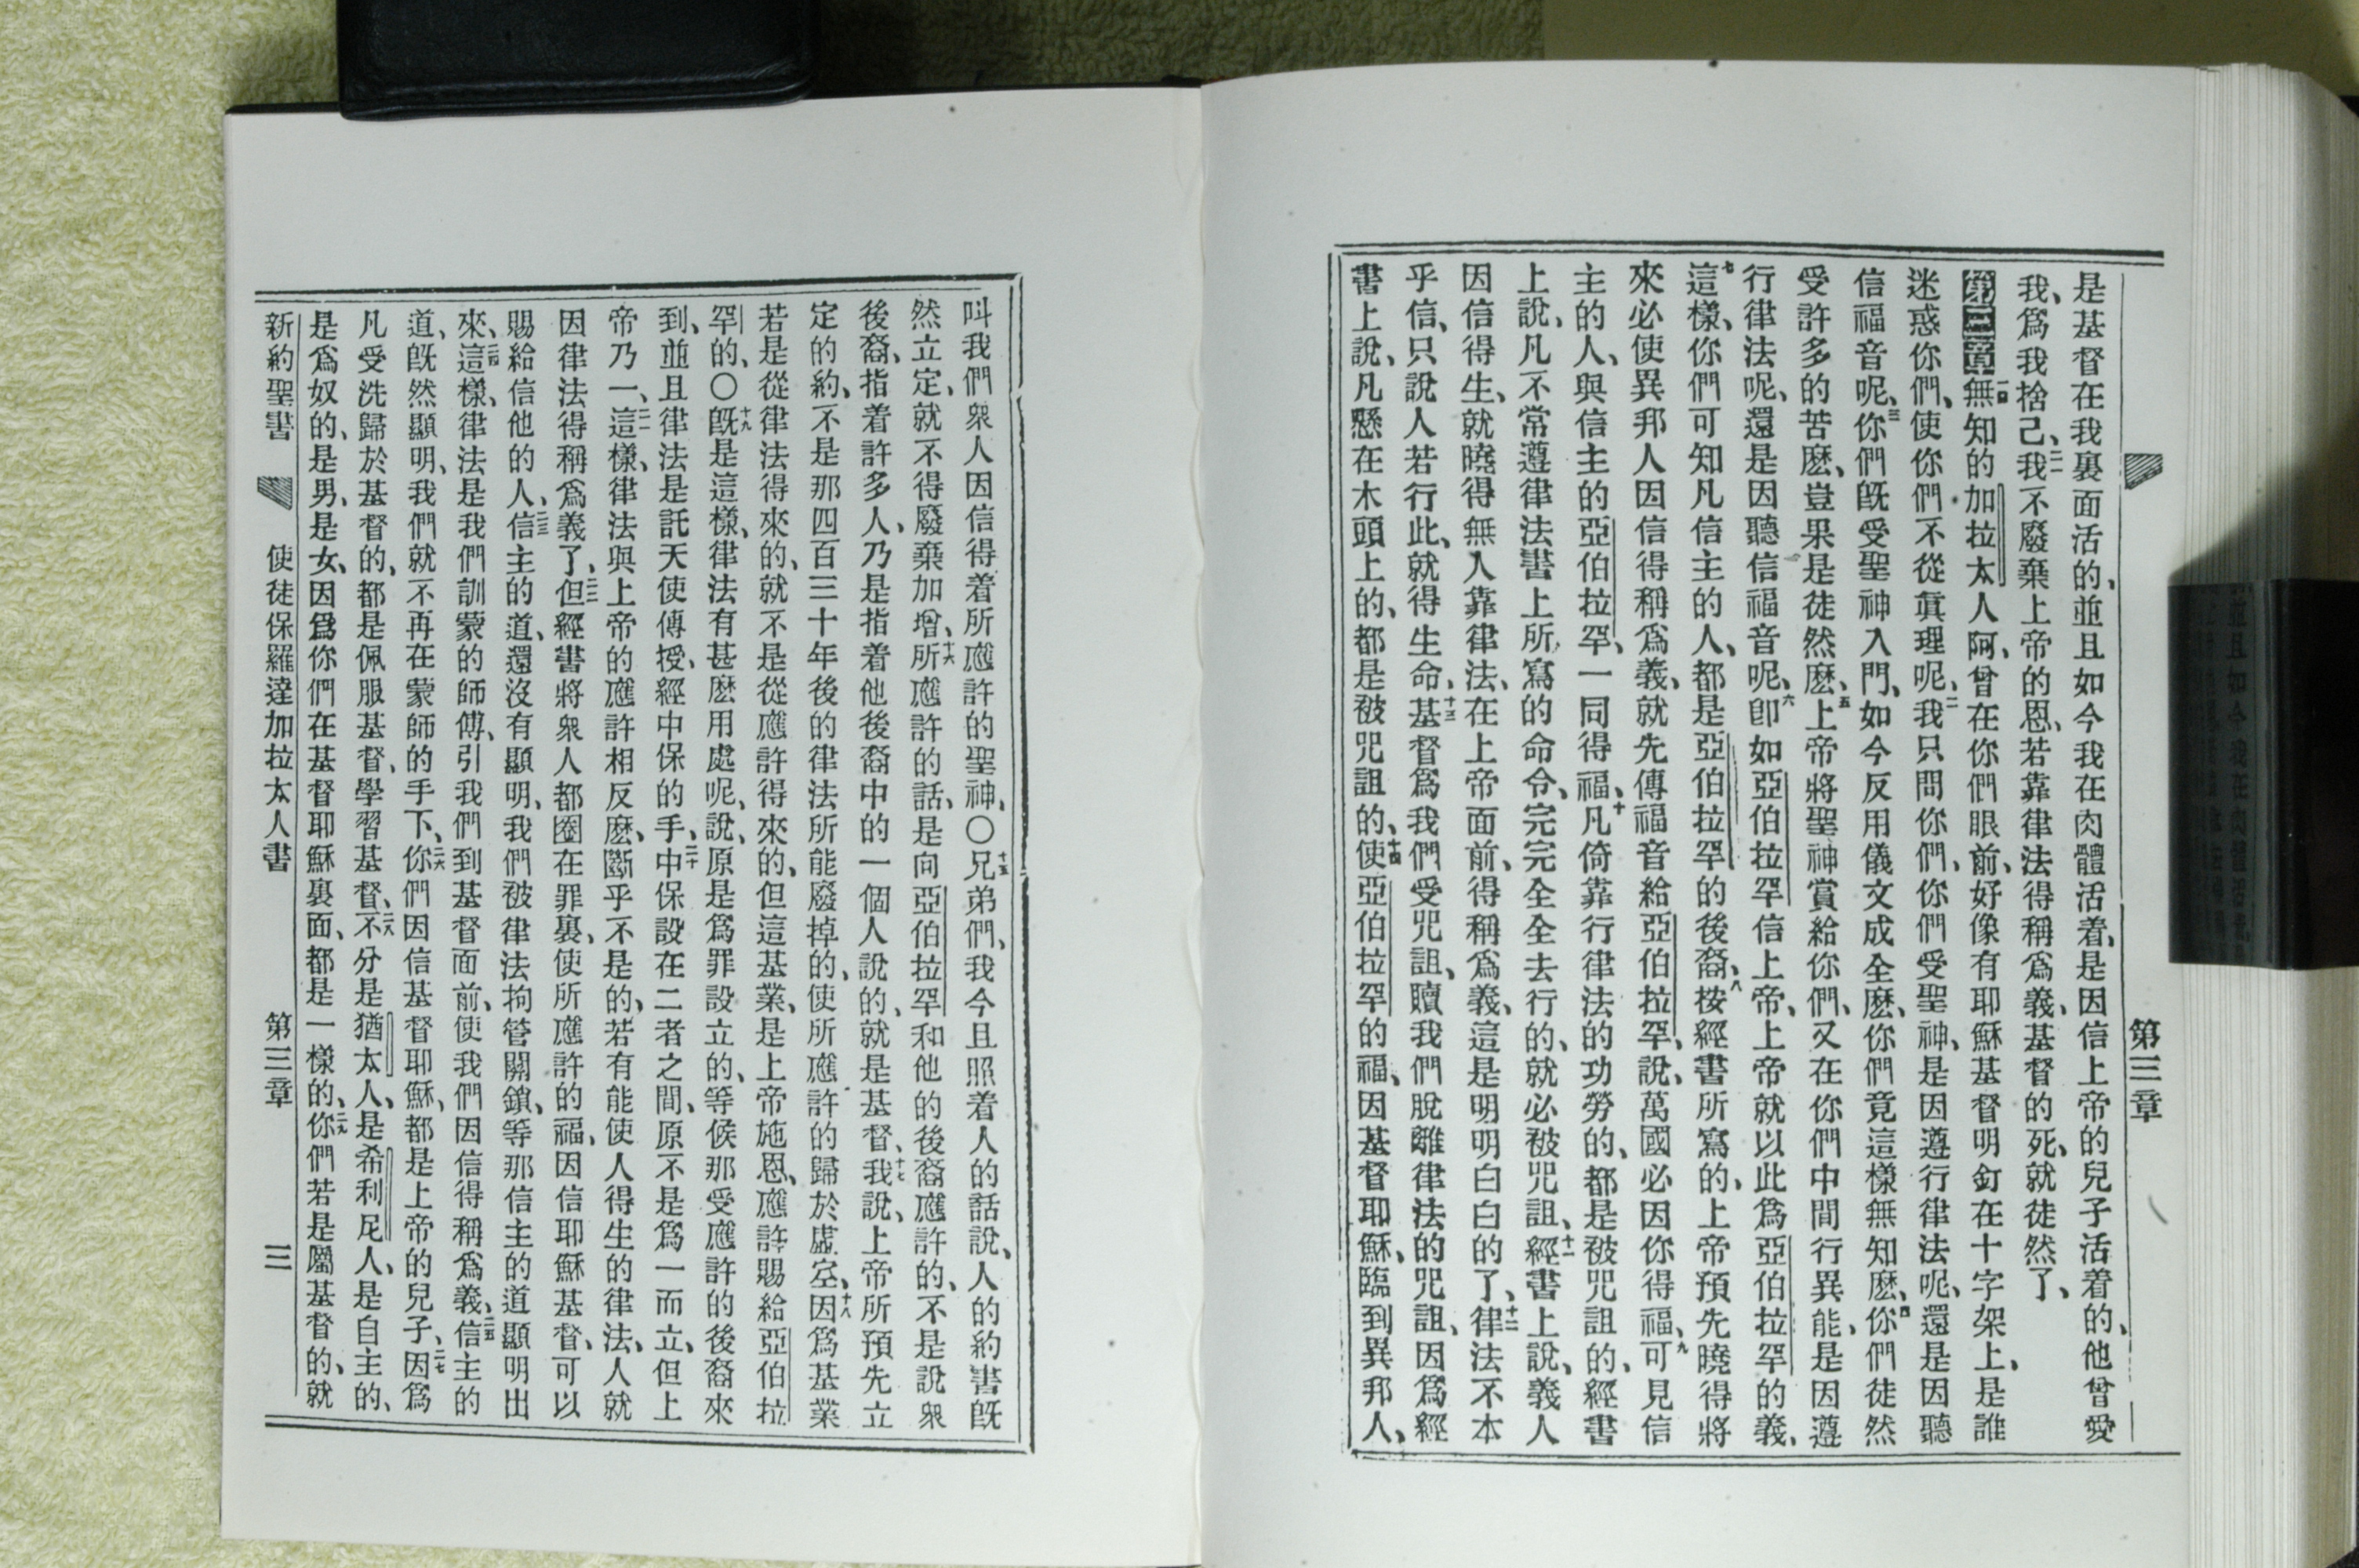 第三章
是基督在我裏面活的、並且如今我在肉體活着、是因信上帝的兒子活着的、他曾愛
我、爲我捨己、二一我不廢棄上帝的恩、若靠律法得稱爲義、基督的死、就徒然了、
第三章一無知的加拉太人阿、曾在你們眼前、好像有耶穌基督明釘在十字架上、是誰
迷惑你們、使你們不從眞理呢、二我只問你們、你們受聖神、是因遵行律法呢、還是因聽
信福音呢、三你們旣受聖神入門、如今反用儀文成全麽、你們竟這樣無知麽、四你們徒然
受許多的苦麽、豈果是徒然麽、五上帝將聖神賞給你們、又在你們中間行異能、是因遵
行律法呢、還是因聽信福音呢、六卽如亞伯拉罕信上帝、上帝就以此爲亞伯拉罕的義、
七這樣、你們可知凡信主的人、都是亞伯拉罕的後裔、八按經書所寫的、上帝預先曉得將
來必使異邦人因信得稱爲義、就先傳福音給亞伯拉罕、說、萬國必因你得福、九可見信
主的人、與信主的亞伯拉罕、一同得福、十凡倚靠行律法的功勞的、都是被咒詛的、經書
上說、凡不常遵律法書上所寫的命令、完完全全去行的、就必被咒詛、十一經書上說、義人
因信得生、就曉得無人靠律法、在上帝面前、得稱爲義、這是明明白白的了、十二律法不本
乎信、只說人若行此、就得生命、十三基督爲我們受咒詛、贖我們脫離律法的咒詛、因爲經
書上說、凡懸在木頭上的、都是被咒詛的、十四使亞伯拉罕的福、因基督耶穌、臨到異邦人、
叫我們衆人因信得着所應許的聖神、〇十五兄弟們、我今且照着人的話說、人的約書旣
然立定、就不得廢棄加增、十六所應許的話、是向亞伯拉罕和他的後裔應許的、不是說衆
後裔、指着許多人、乃是指着他後裔中的一個人說的、就是基督、十七我說、上帝所預先立
定的約、不是那四百三十年後的律法所能廢掉的、使所應許的歸於虛空、十八因爲基業
若是從律法得來的、就不是從應許得來的、但這基業、是上帝施恩、應許賜給亞伯拉
罕的、〇十九旣是這樣、律法有甚麽用處呢、說、原是爲罪設立的、等候那受應許的後裔來
到、並且律法是託天使傳授、經中保的手、二十中保設在二者之間、原不是爲一而立、但上
帝乃一、二一這樣、律法與上帝的應許相反麽、斷乎不是的、若有能使人得生的律法、人就
因律法得稱爲義了、二二但經書將衆人都圈在罪裏、使所應許的福、因信耶穌基督、可以
賜給信他的人、二三信主的道、還沒有顯明、我們被律法拘管關鎖、等那信主的道顯明出
來、二四這樣、律法是我們訓蒙的師傅、引我們到基督面前、使我們因信得稱爲義、二五信主的
道、旣然顯明、我們就不再在蒙師的手下、二六你們因信基督耶穌、都是上帝的兒子、二七因爲
凡受洗歸於基督的、都是佩服基督、學習基督、二八不分是猶太人、是希利尼人、是自主的、
是爲奴的、是男、是女、因爲你們在基督耶穌裏面、都是一樣的、二九你們若是屬基督的、就
新約聖書 使徒保羅達加拉太人書 第三章 三